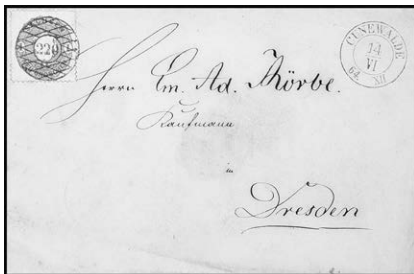 220
CUNEWALDE
14
VI
64 XII
Herrn Em. Ad. Thörbe.
Kaufmann
in
Dresden